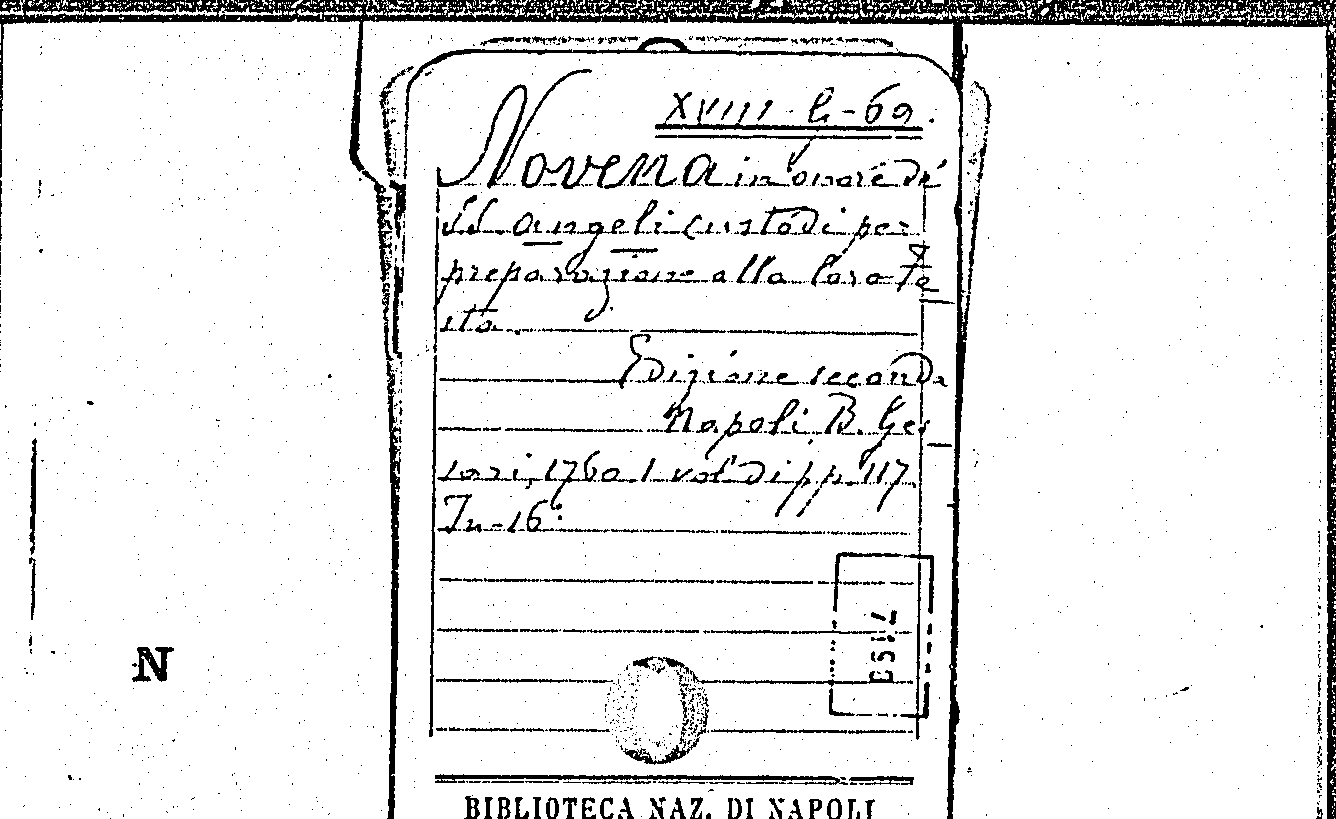 XVIII G-69.
Novena in onore de'
SS. Angeli custodi per
preparazione alla loro Fe
sta.
Edizione seconda
Napoli, B. Ges
sari, 1760 1 vol. di pp. 117
In-16:
N
BIBLIOTECA NAZ. DI NAPOLI